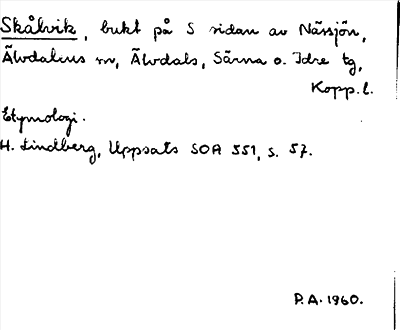 Skålvik, bukt på S sidan av Nässjön,
Älvdalens sn, Älvdals, Särna o. Idre tg,
Kopp. l.
Etymologi.
H. Lindberg, Uppsats SOA 551, s. 57.
P.A. 1960.